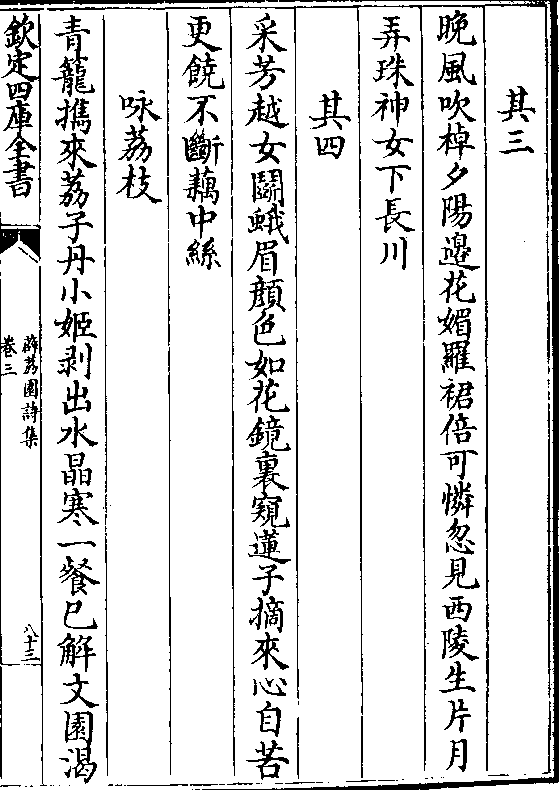 其三
晚風吹棹夕陽邉花媚羅裙倍可憐忽見西陵生片月
弄珠神女下長川
其四
采芳越女鬬蛾眉顔色如花鏡裏窺蓮子摘來心自苦
更饒不斷藕中絲
咏荔枝
青籠攜來荔子丹小姬剥出水晶寒一餐已解文園渴
欽定四庫全書
薜荔園詩集
卷三
八十三